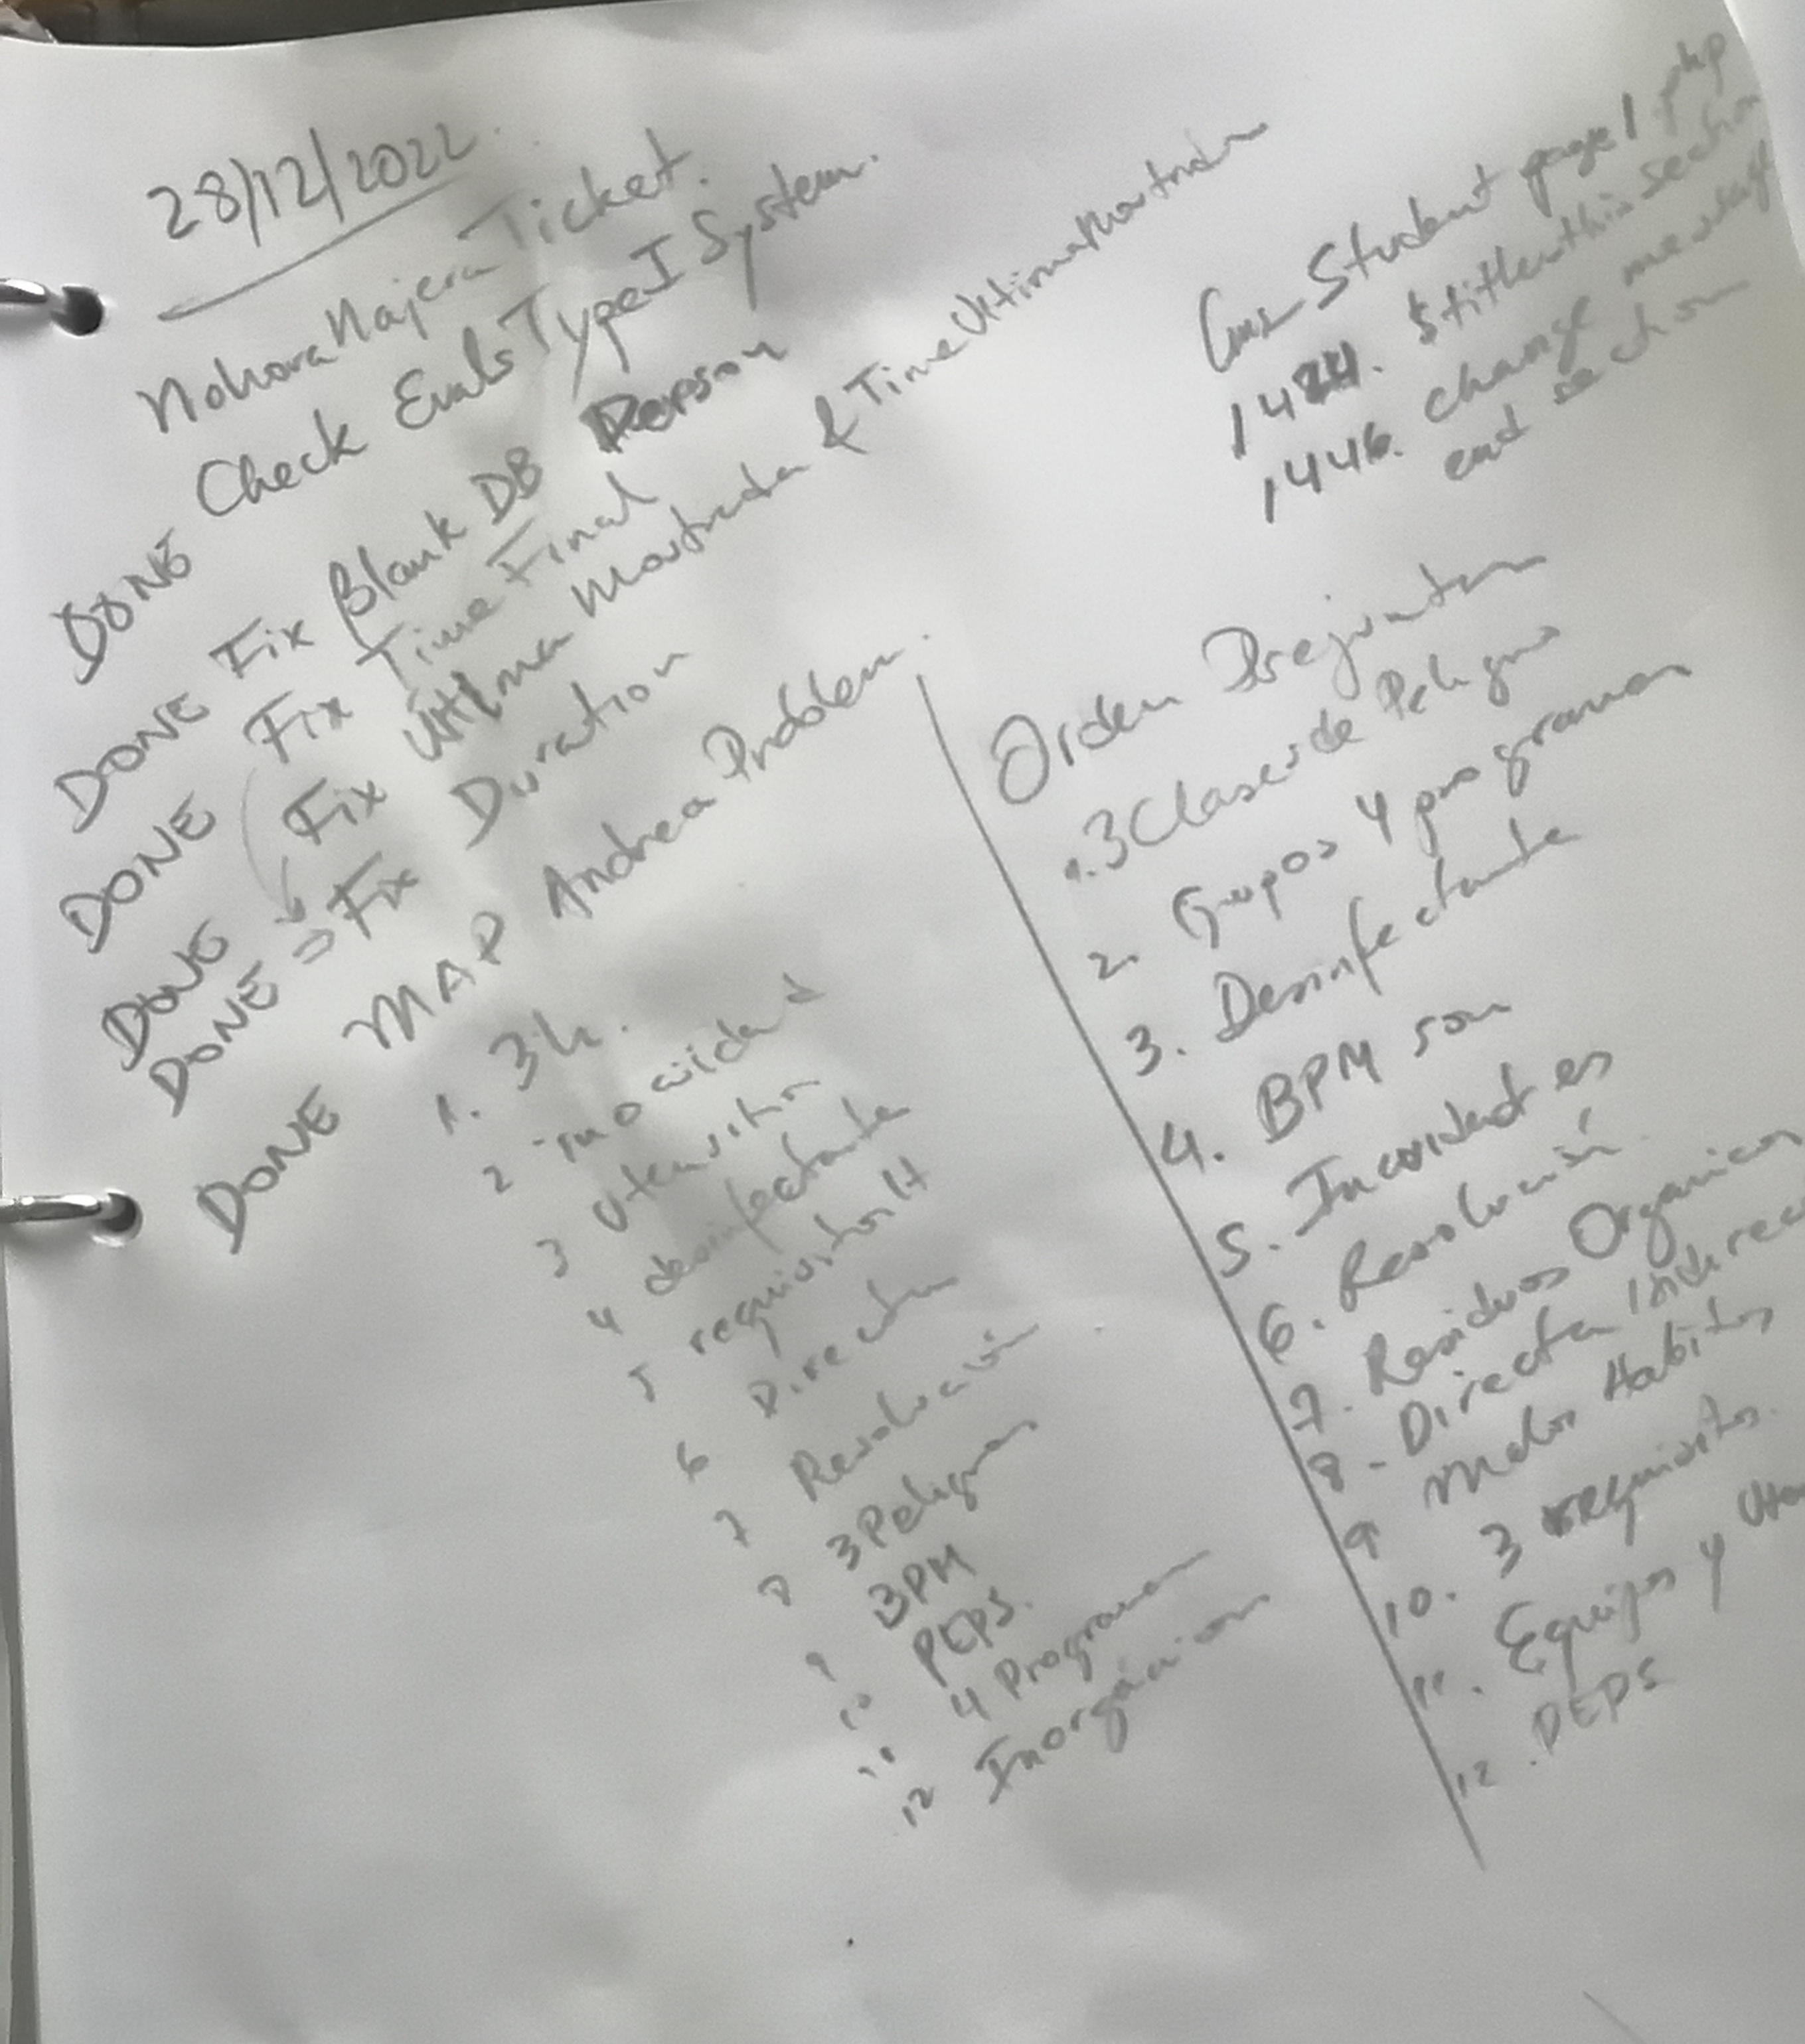 28/12/2022
Nohora Najera Ticket.
DONE Check Evals Type I System.
DONE Fix Blank DB Person
DONE Fix Time Final
DONE Fix Ultima Mostrada & Time Ultima Mostrada
DONE => Fix Duration
DONE MAP Andrea Problem.
1. 3h.
2 inocuidad
3 Utensilios
4 desinfectante
5 requisitos H
6 Directa
7 Resolución
8 3 Peligros
9 BPM
10 PEPS.
11 4 Programas
12 Inorgánicos
Student page1 php
1424. $titlewthissection
1446. change message
end section
Orden Preguntas
1. 3 Clases de Peligros
2. Grupos 4 programas
3. Desinfectante
4. BPM son
5. Incorrident es
6. Resolución.
7. Residuos Organicos
8. Directa / Indirec
9 Malos Habitos
10. 3 requisitos.
11. Equipos y Uten
12. PEPS